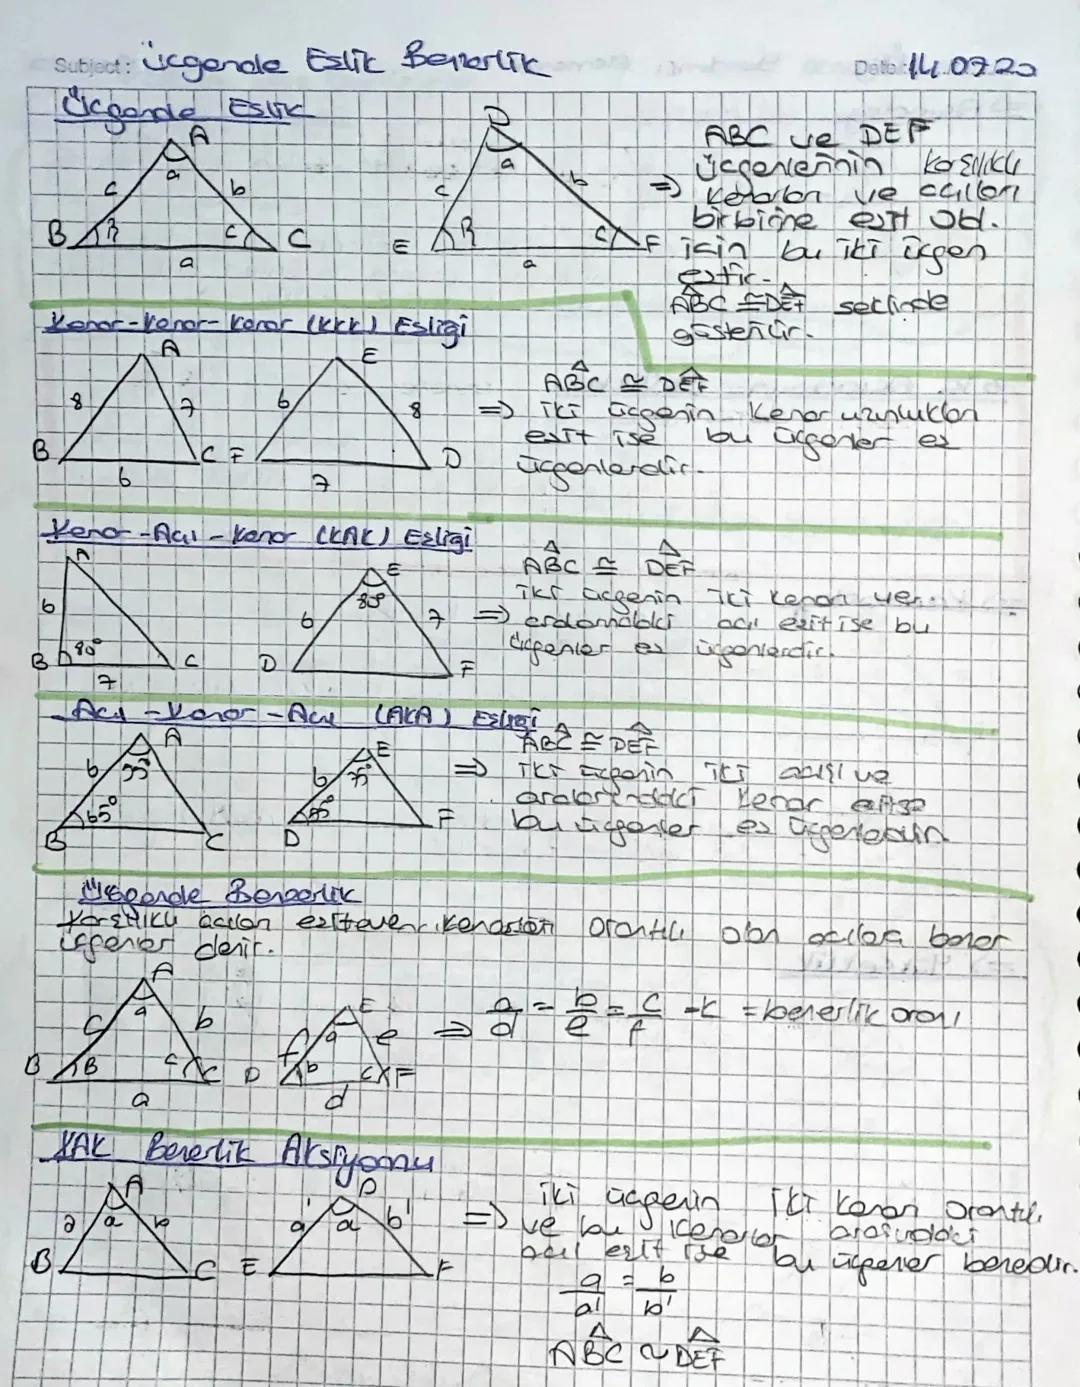 Subject: Üçgende Eşlik Benzerlik Date: 14.07.20
Üçgende Eşlik
A
c
a
b
B
B
c
C
a
D
a
c
b
E
B
c
F
a
ABC ve DEF
üçgenlerinin karşılıklı
⇒ kenarları ve açıları
birbirine eşit old.
için bu iki üçgen
eştir.
ABC ≅ DEF şeklinde
gösterilir.
Kenar-Kenar-Kenar (KKK) Eşliği
A
8
7
B
C
6
E
6
8
F
D
7
ABC ≅ DEF
⇒ iki üçgenin kenar uzunlukları
eşit ise bu üçgenler eş
üçgenlerdir.
Kenar-Açı-Kenar (KAK) Eşliği
A
6
B
80°
C
7
E
80°
6
7
D
F
ABC ≅ DEF
iki üçgenin iki kenarı ve
⇒ aralarındaki açı eşit ise bu
üçgenler eş üçgenlerdir.
Açı-Kenar-Açı (AKA) Eşliği
A
b
35°
65°
B
C
E
b
35°
65°
D
F
ABC ≅ DEF
⇒ iki üçgenin iki açısı ve
aralarındaki kenar eşitse
bu üçgenler eş üçgenlerdir.
Üçgende Benzerlik
Karşılıklı açıları eşit kenarları orantılı olan açılara benzer
üçgenler denir.
A
a
c
b
B
B
c
C
a
E
a
f
e
D
b
c
F
d
⇒ a/d = b/e = c/f = k = benzerlik oranı
KAK Benzerlik Aksiyomu
A
a
a
b
B
C
D
a'
a
b'
E
F
iki üçgenin iki kenarı orantılı,
⇒ ve bu kenarlar arasındaki
açıl eşit ise bu üçgenler benzerdir.
a/a' = b/b'
ABC ~ DEF